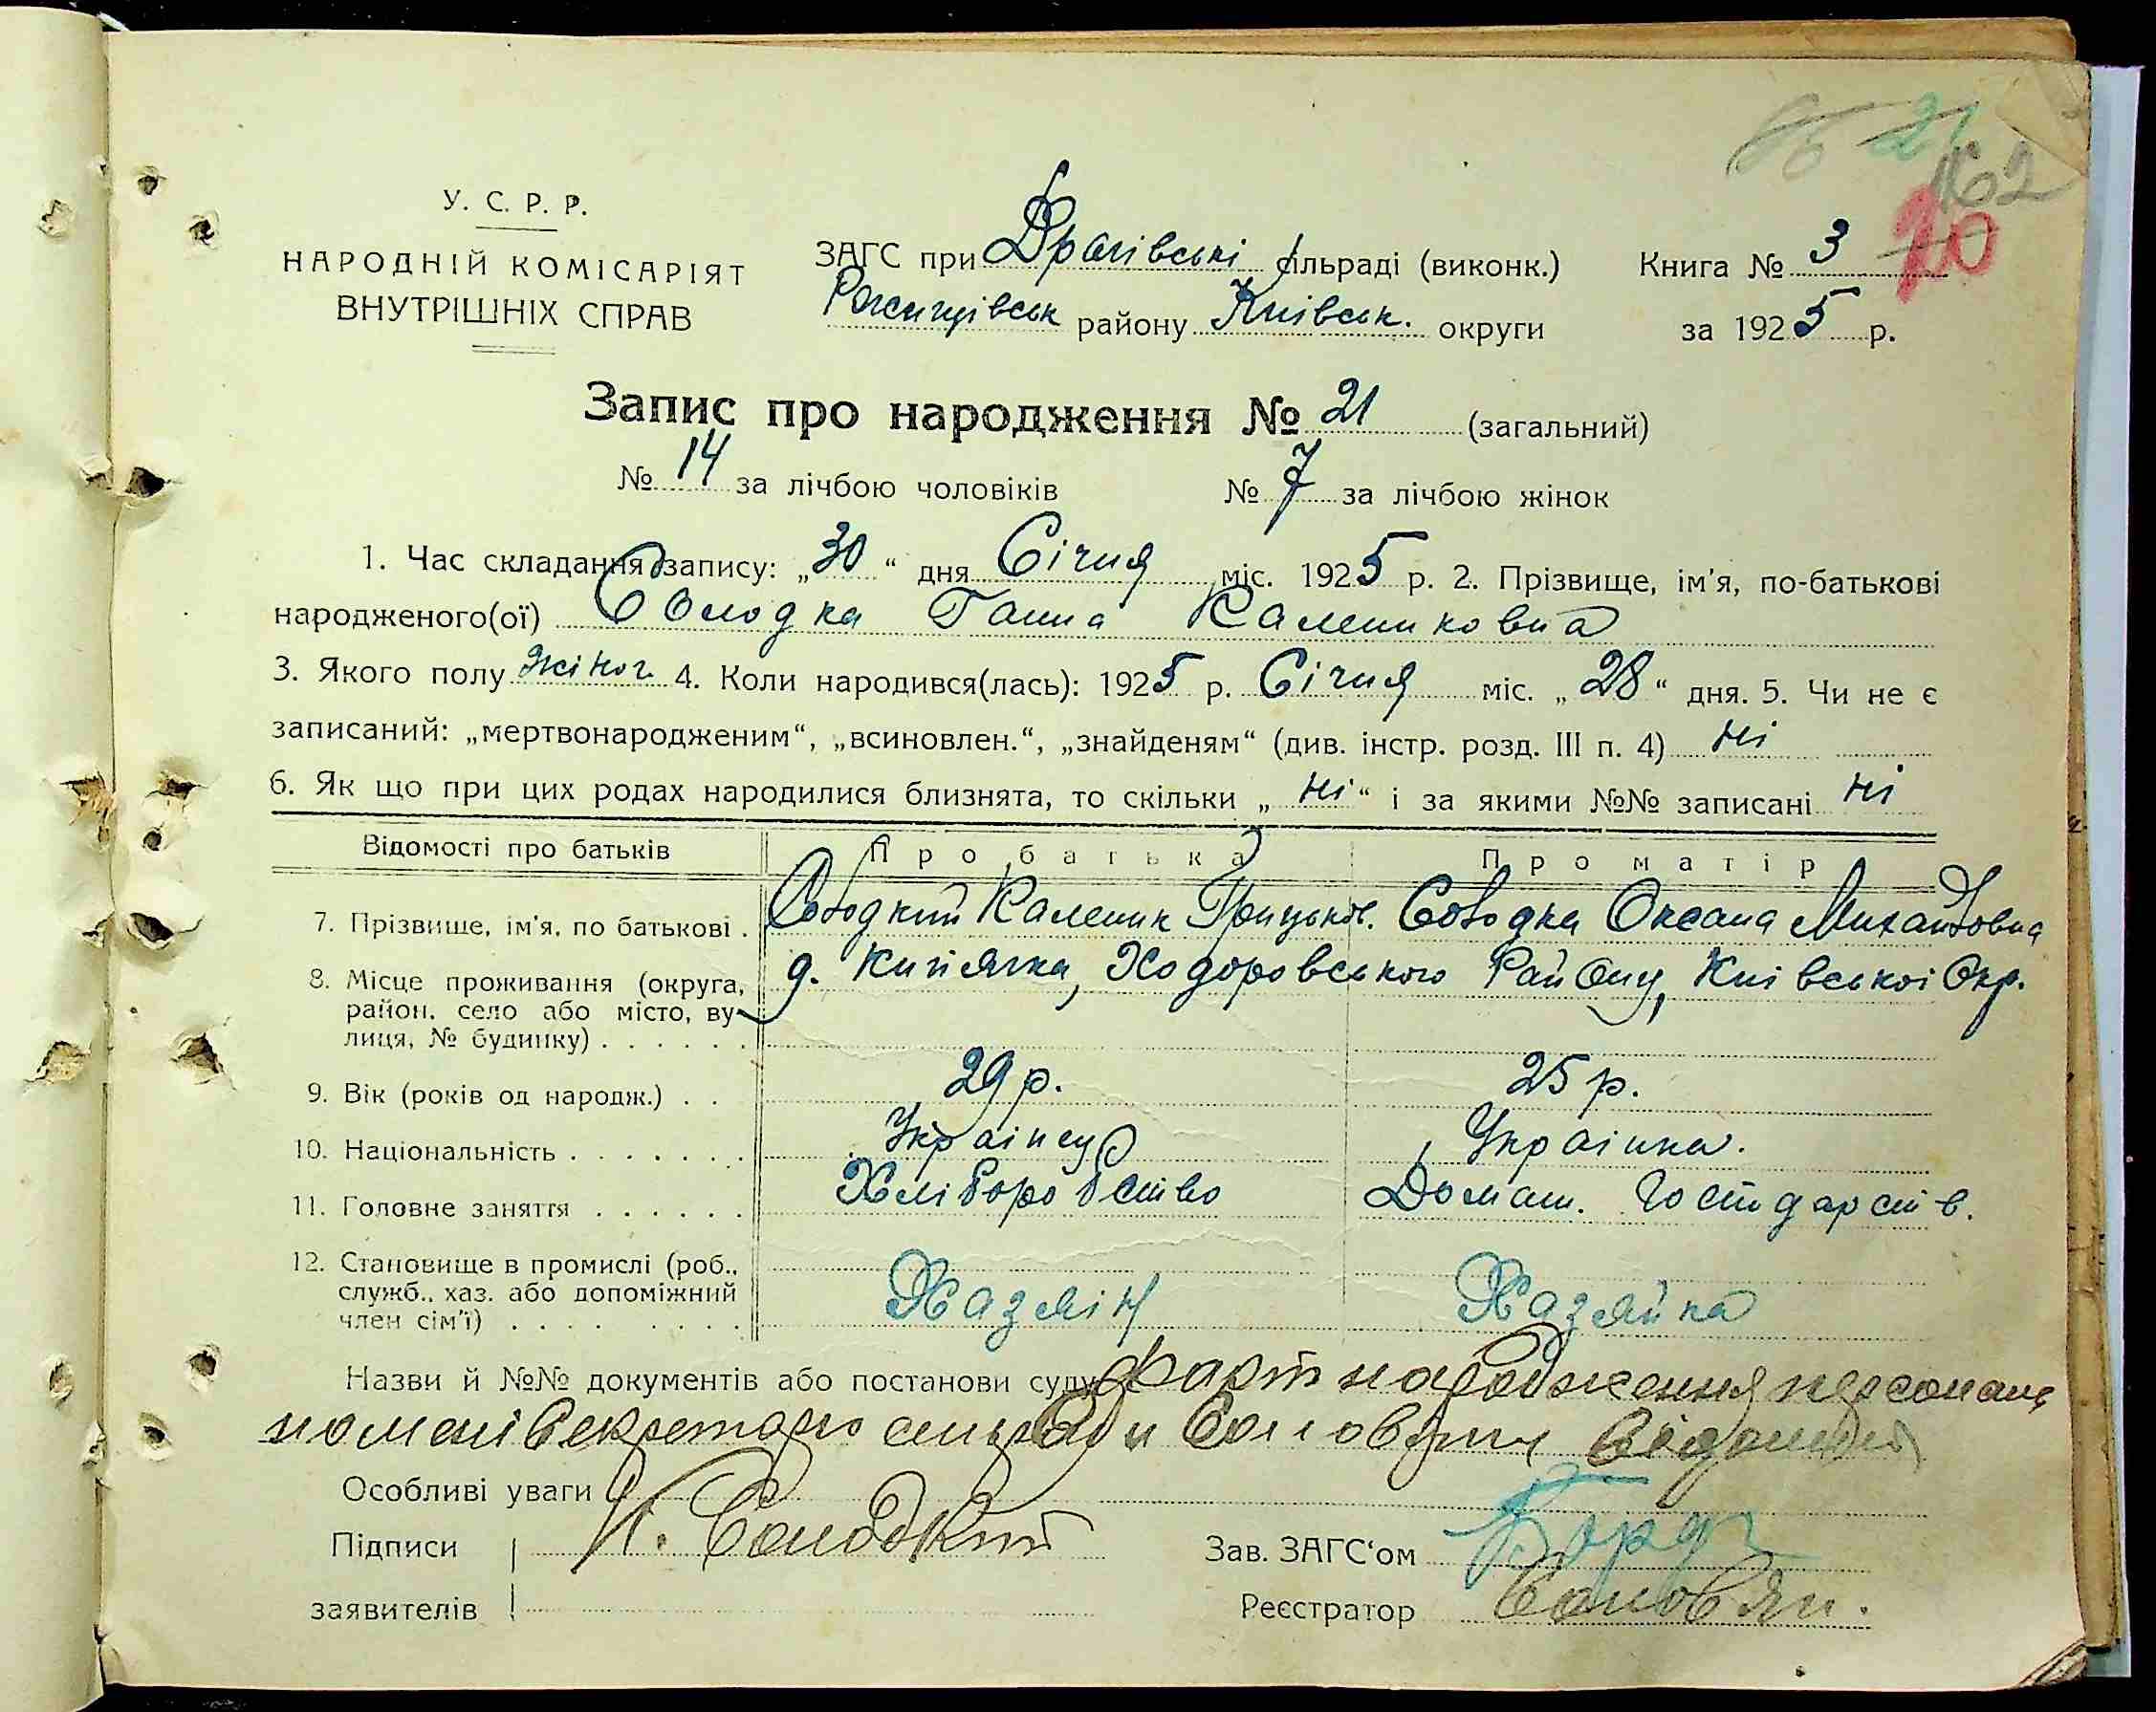 21
162
70
У. С. Р. Р.
НАРОДНІЙ КОМІСАРІЯТ
ВНУТРІШНІХ СПРАВ
ЗАГС при сільраді (виконк.)
Книга № 3
району Київськ. округи
за 1925 р.
Запис про народження № 21 (загальний)
№ 14 за лічбою чоловіків № 7 за лічбою жінок
1. Час складання запису: „30“ дня Січня міс. 1925 р. 2. Прізвище, ім'я, по-батькові
народженого(ої) Солодка Ганна Калениковна
3. Якого полу жіноч. 4. Коли народився(лась): 1925 р. Січня міс. „28“ дня. 5. Чи не є
записаний: „мертвонародженим“, „всиновлен.“, „знайденям“ (див. інстр. розд. III п. 4) ні
6. Як що при цих родах народилися близнята, то скільки „ні“ і за якими №№ записані ні
Відомості про батьків Про батька Про матір
7. Прізвище, ім'я, по батькові . Солодкий Каленик Грицьков. Солодка Оксана Михайловна
8. Місце проживання (округа, район, село або місто, вулиця, № будинку) . . . . . . Ходоровського Району, Київської Окр.
9. Вік (років од народж.) . . 29 р. 25 р.
10. Національність . . . . . . . Українец Українка.
11. Головне заняття . . . . . . Хліборобство Домаш. Господарств.
12. Становище в промислі (роб., служб., хаз. або допоміжний член сім'ї) . . . . . . . . Хазяін Хазяйка
Назви й №№ документів або постанови суду факт народження персонально
мені Секретарю сільради
Особливі уваги
Підписи К. Солодкий Зав. ЗАГС‘ом
заявителів Реєстратор